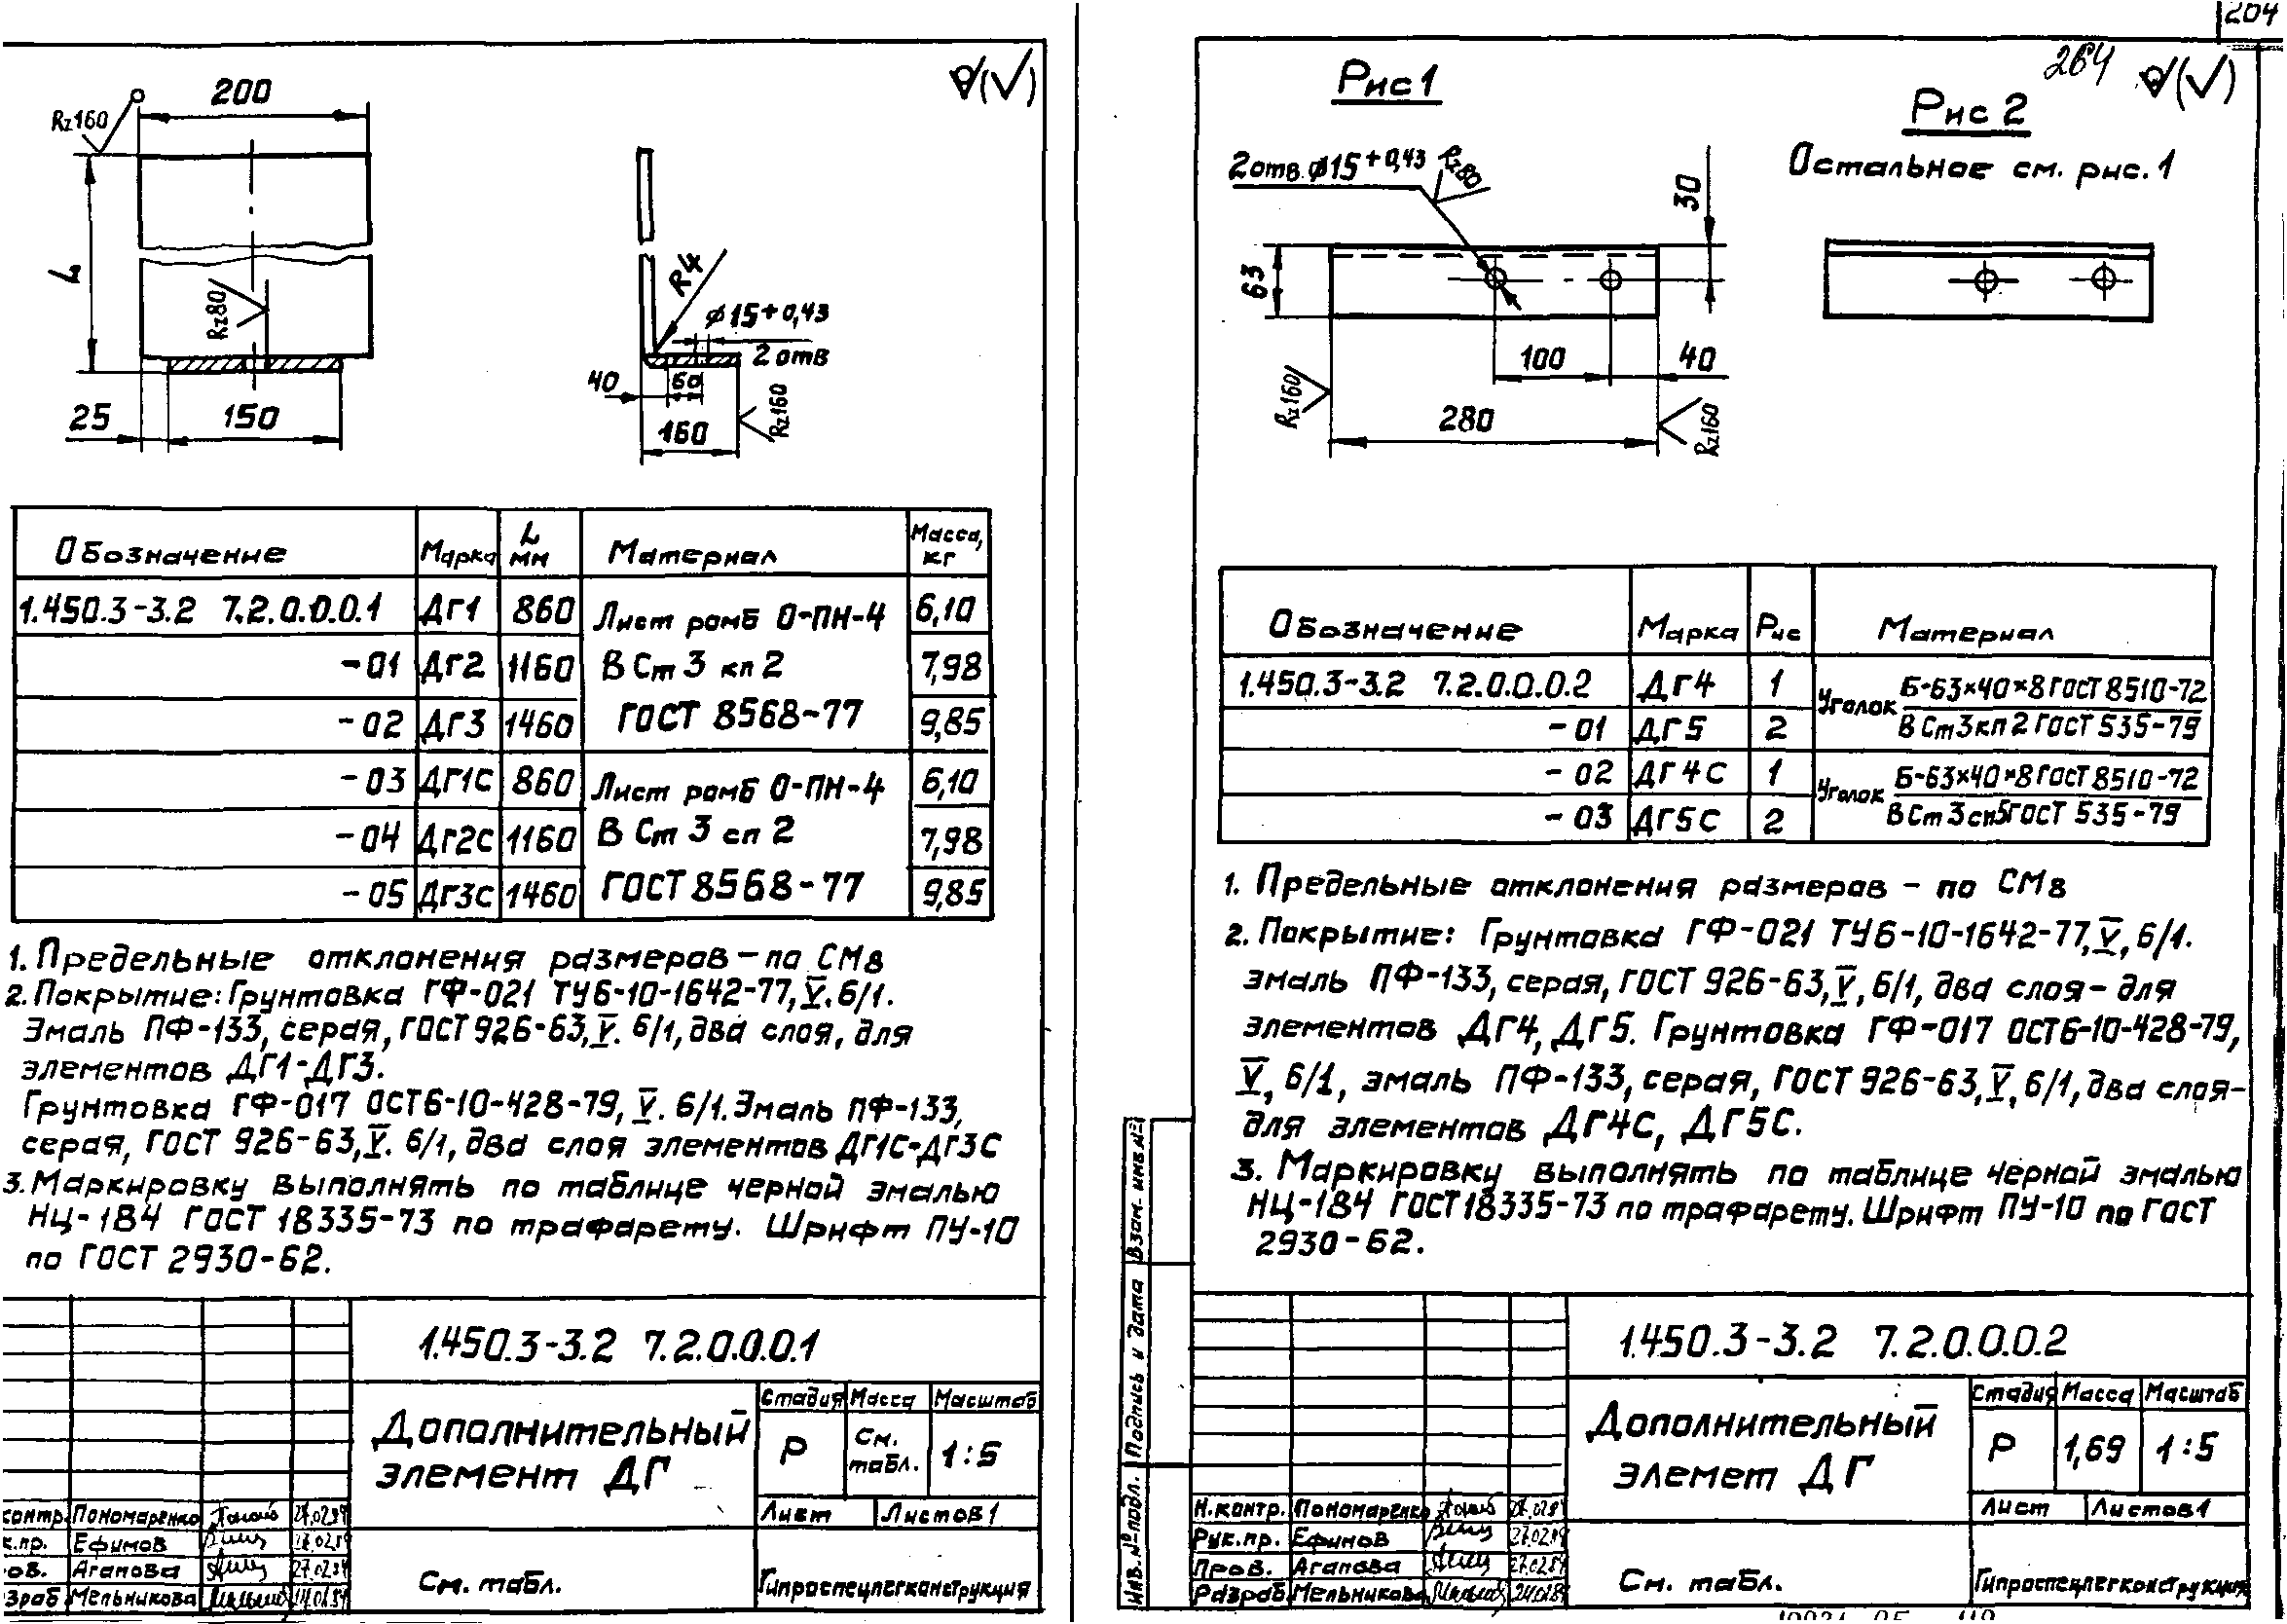 200
Rz160
L
Rz80
25
150
R4
ø15+0,43
2 отв
40
60
160
Rz160
Обозначение Марка L мм Материал Масса, кг
1.450.3-3.2 7.2.0.0.0.1 ДГ1 860 Лист ромб О-ПН-4 6,10
-01 ДГ2 1160 В Ст 3 кп 2 7,98
-02 ДГ3 1460 ГОСТ 8568-77 9,85
-03 ДГ1С 860 Лист ромб О-ПН-4 6,10
-04 ДГ2С 1160 В Ст 3 сп 2 7,98
-05 ДГ3С 1460 ГОСТ 8568-77 9,85
1. Предельные отклонения размеров - по СМ8
2. Покрытие: Грунтовка ГФ-021 ТУ6-10-1642-77, V. 6/1.
Эмаль ПФ-133, серая, ГОСТ 926-63, V. 6/1, два слоя, для
элементов ДГ1-ДГ3.
Грунтовка ГФ-017 ОСТ6-10-428-79, V. 6/1. Эмаль ПФ-133,
серая, ГОСТ 926-63, V. 6/1, два слоя элементов ДГ1С-ДГ3С
3. Маркировку выполнять по таблице черной эмалью
НЦ-184 ГОСТ 18335-73 по трафарету. Шрифт ПУ-10
по ГОСТ 2930-62.
1.450.3-3.2 7.2.0.0.0.1
Дополнительный
элемент ДГ
Стадия Масса Масштаб
Р См. табл. 1:5
Лист Листов 1
контр. Пономаренко
к.пр. Ефимов
ров. Агапова 27.02.84
азраб Мельникова
См. табл.
Гипроспецлегконструкция
204
264
Рис 1
Рис 2
Остальное см. рис. 1
2 отв. ø15+0,43
Rz80
30
63
100
40
280
Rz160
Rz160
Обозначение Марка Рис Материал
1.450.3-3.2 7.2.0.0.0.2 ДГ4 1 Уголок Б-63×40×8 ГОСТ 8510-72
-01 ДГ5 2 В Ст 3 кп 2 ГОСТ 535-79
-02 ДГ4С 1 Уголок Б-63×40×8 ГОСТ 8510-72
-03 ДГ5С 2 В Ст 3 сп5 ГОСТ 535-79
1. Предельные отклонения размеров - по СМ8
2. Покрытие: Грунтовка ГФ-021 ТУ6-10-1642-77, V, 6/1.
эмаль ПФ-133, серая, ГОСТ 926-63, V, 6/1, два слоя - для
элементов ДГ4, ДГ5. Грунтовка ГФ-017 ОСТ6-10-428-79,
V, 6/1, эмаль ПФ-133, серая, ГОСТ 926-63, V, 6/1, два слоя-
для элементов ДГ4С, ДГ5С.
3. Маркировку выполнять по таблице черной эмалью
НЦ-184 ГОСТ 18335-73 по трафарету. Шрифт ПУ-10 по ГОСТ
2930-62.
Взам. инв. №
Подпись и дата
Инв. № подл.
1.450.3-3.2 7.2.0.0.0.2
Дополнительный
элемет ДГ
Стадия Масса Масштаб
Р 1,69 1:5
Лист Листов 1
Н.контр. Пономаренко
Рук.пр. Ефимов 27.02.84
Пров. Агапова 27.02.84
Разраб. Мельникова
См. табл.
Гипроспецлегконструкция